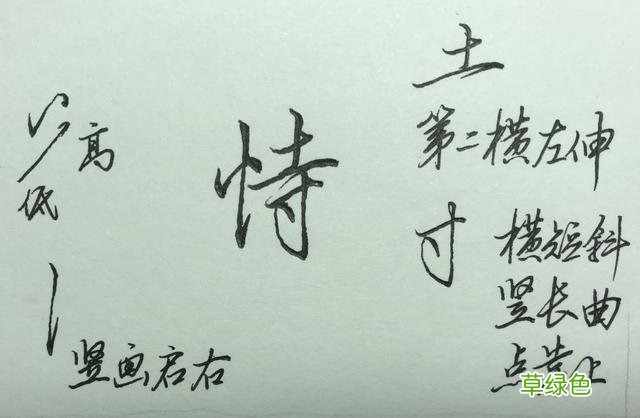 土
高
第二横左伸
低
恃
寸
横短斜
竖长曲
点靠上
竖画居右
草绿色